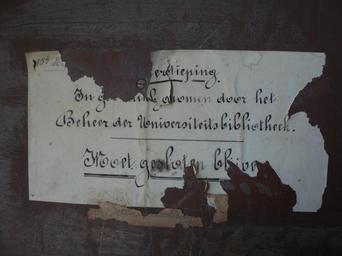 erdieping.
In g nomen door het
Beheer der Universiteitsbibliotheek.
Moet gesloten blijve